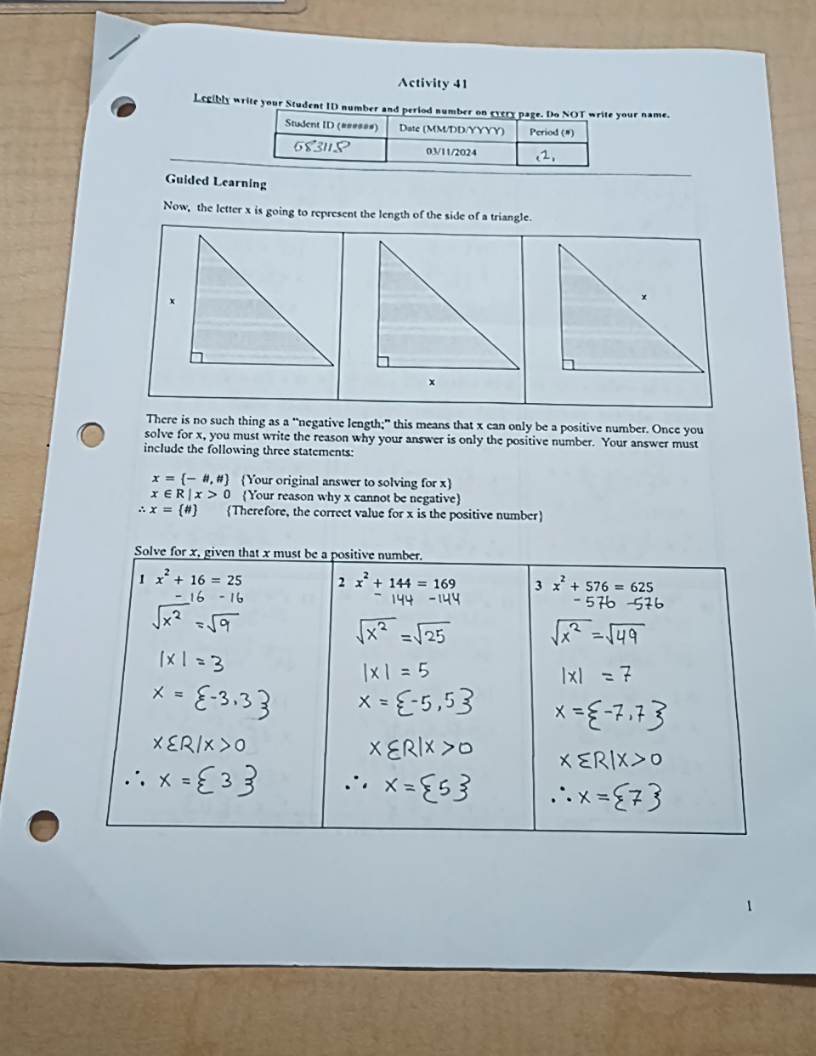 Activity 41
Legibly write your Student ID number and period number on every page. Do NOT write your name.
Student ID (######) Date (MM/DD/YYYY) Period (#)
683118 03/11/2024 2,
Guided Learning
Now, the letter x is going to represent the length of the side of a triangle.
x
x
x
There is no such thing as a "negative length;" this means that x can only be a positive number. Once you
solve for x, you must write the reason why your answer is only the positive number. Your answer must
include the following three statements:
x = {− #, #} {Your original answer to solving for x}
x ∈ R | x > 0 {Your reason why x cannot be negative}
∴ x = {#} {Therefore, the correct value for x is the positive number}
Solve for x, given that x must be a positive number.
1 x² + 16 = 25
- 16 - 16
√x² = √9
|x| = 3
x = {-3,3}
x ∈ R | x > 0
∴ x = {3}
2 x² + 144 = 169
- 144 -144
√x² = √25
|x| = 5
x = {-5,5}
x ∈ R | x > 0
∴ x = {5}
3 x² + 576 = 625
- 576 -576
√x² = √49
|x| = 7
x = {-7,7}
x ∈ R | x > 0
∴ x = {7}
1